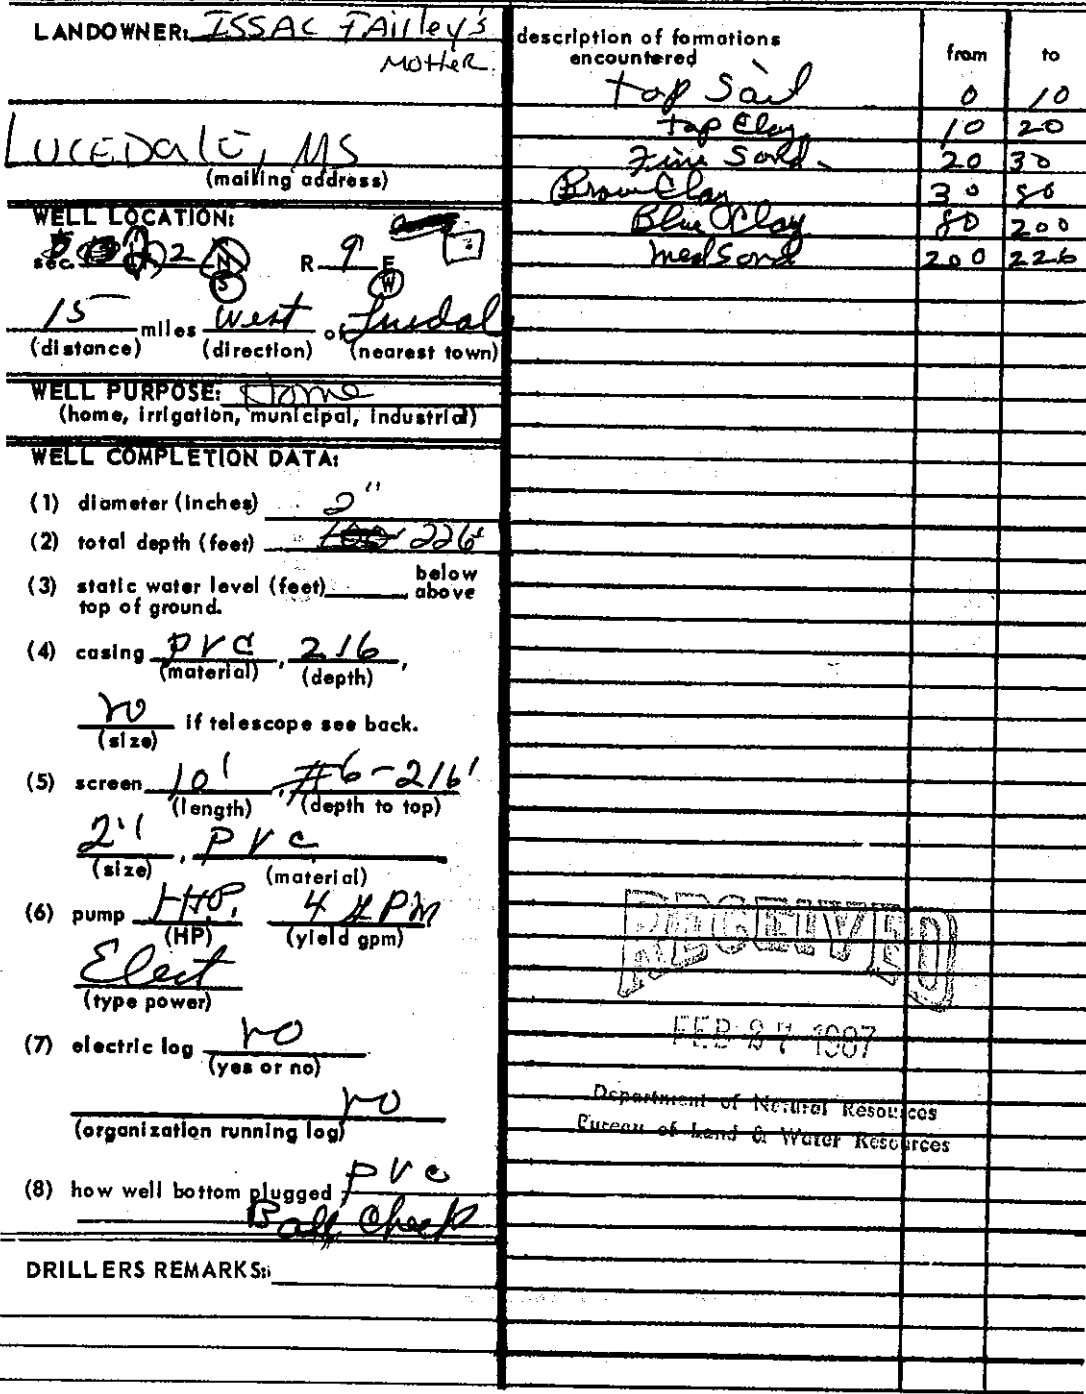 LANDOWNER: ISSAC FAilley's
MOTHER
LUCEDalE, MS
(mailing address)
WELL LOCATION:
sec. 2 N R 9 E
S W
15 miles West of Lucedal
(distance) (direction) (nearest town)
WELL PURPOSE: Home
(home, irrigation, municipal, industrial)
WELL COMPLETION DATA:
(1) diameter (inches) 2"
(2) total depth (feet) 226'
(3) static water level (feet) below
above
top of ground.
(4) casing PVC, 216,
(material) (depth)
no if telescope see back.
(size)
(5) screen 10', #6-216'
(length) (depth to top)
2", PVC
(size) (material)
(6) pump 1HP. 4 GPM
(HP) (yield gpm)
Elect
(type power)
(7) electric log no
(yes or no)
no
(organization running log)
(8) how well bottom plugged PVC
Ball Check
DRILLERS REMARKS:
description of formations
encountered from to
top Soil 0 10
top Clay 10 20
Fine Sand 20 30
Brown Clay 30 80
Blue Clay 80 200
med Sand 200 226
RECEIVED
FEB 27 1987
Department of Natural Resources
Bureau of Land & Water Resources